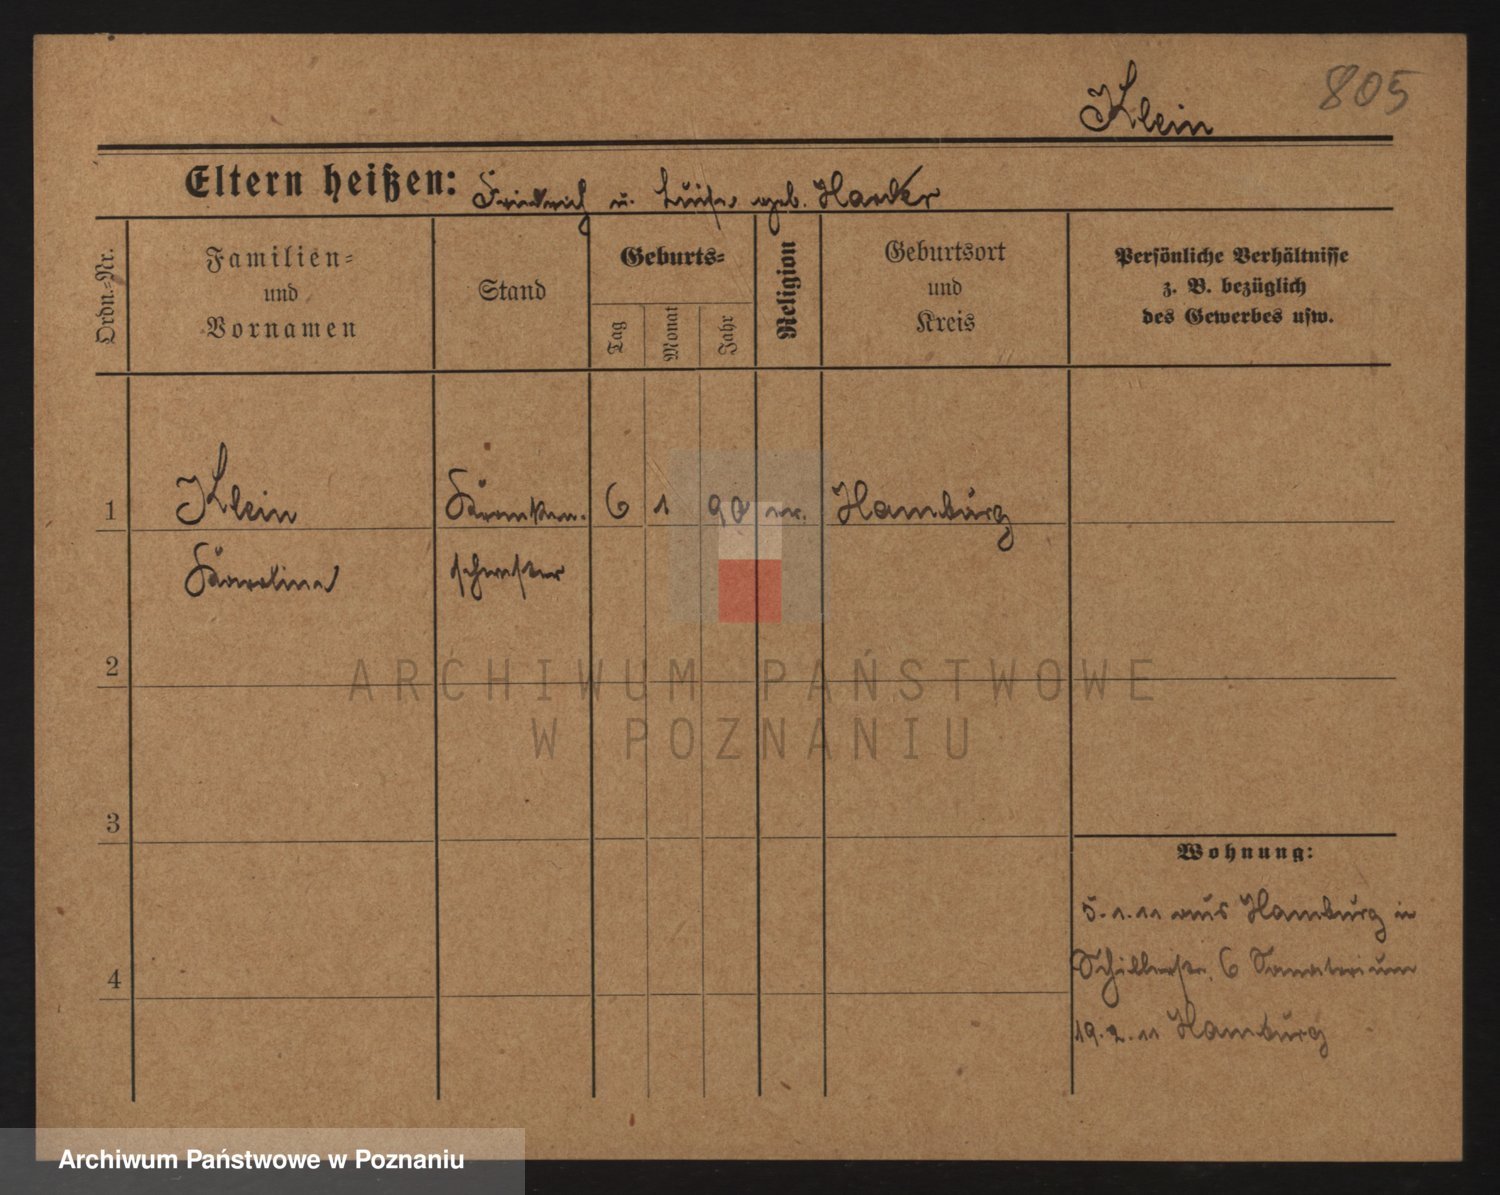 805
Klein
Eltern heißen: Friedrich u. Luise geb. Harder
Ordn.-Nr.
Familien-
und
Vornamen
Stand
Geburts-
Tag
Monat
Jahr
Religion
Geburtsort
und
Kreis
Persönliche Verhältnisse
z. B. bezüglich
des Gewerbes usw.
1 Klein Kranken- 6 1 90 ev. Hamburg
Karoline schwester
2
ARCHIWUM PAŃSTWOWE
W POZNANIU
3
Wohnung:
5.1.11 aus Hamburg in
4
Schillerstr. 6 Sanatorium
19.2.11 Hamburg
Archiwum Państwowe w Poznaniu